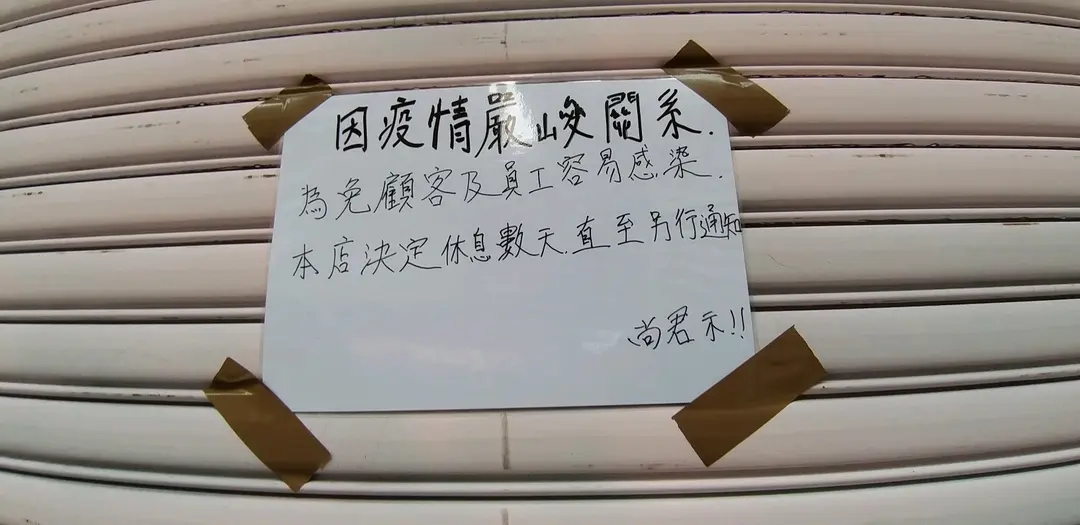 因疫情嚴峻關系.
為免顧客及員工容易感染.
本店決定休息數天.直至另行通知
尚君示!!